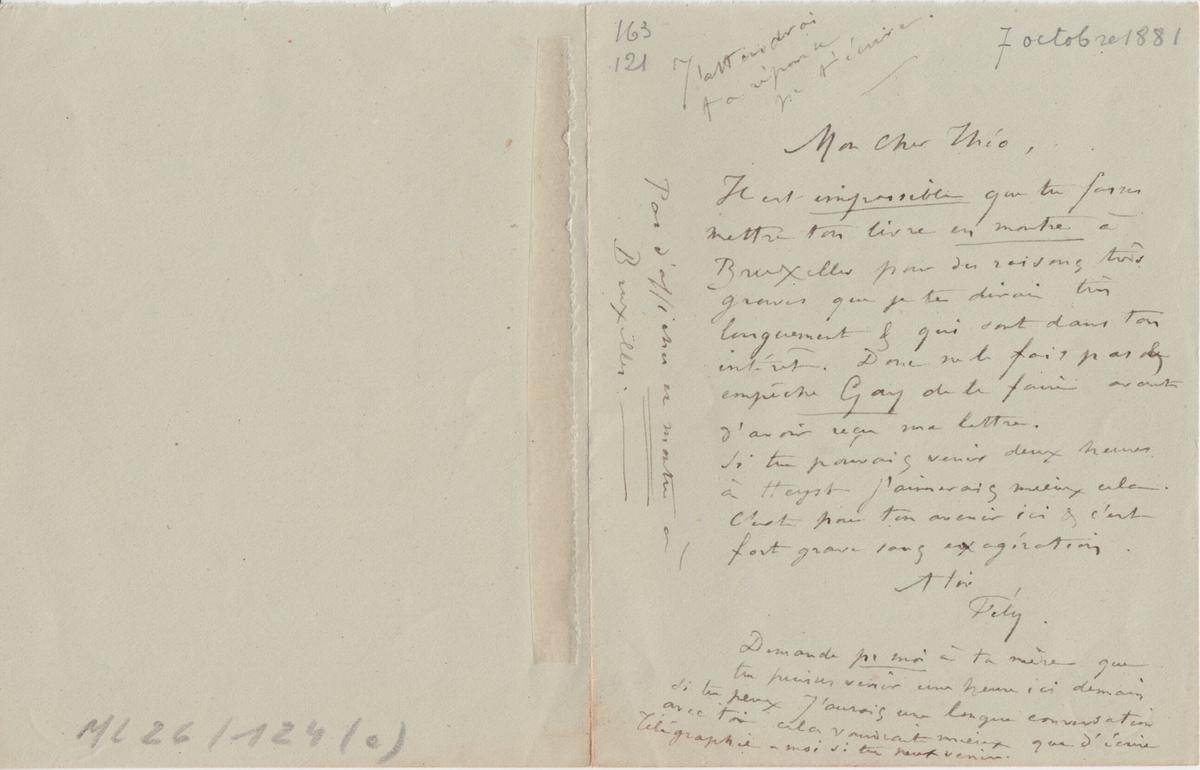 163
121
7 octobre 1881
J'attendrai
ta réponse
pr t'écrire.
Mon cher Théo,
Il est impossible que tu fasses
mettre ton livre en montre à
Bruxelles pour des raisons très
graves que je te dirai très
longuement & qui sont dans ton
intérêt. Donc ne le fais pas &
empêche Gay de le faire avant
d'avoir reçu ma lettre.
Si tu pouvais venir deux heures
à Heyst j'aimerais mieux cela.
C'est pour ton avenir ici & c'est
fort grave sans exagération.
A toi
Fély.
Demande pr moi à ta mère que
tu puisses venir une heure ici demain
si tu peux. J'aurais une longue conversation
avec toi cela vaudrait mieux que d'écrire
Télégraphie-moi si tu veux venir.
Pas d'affiches en montre à
Bruxelles.
ML 26/124(c)